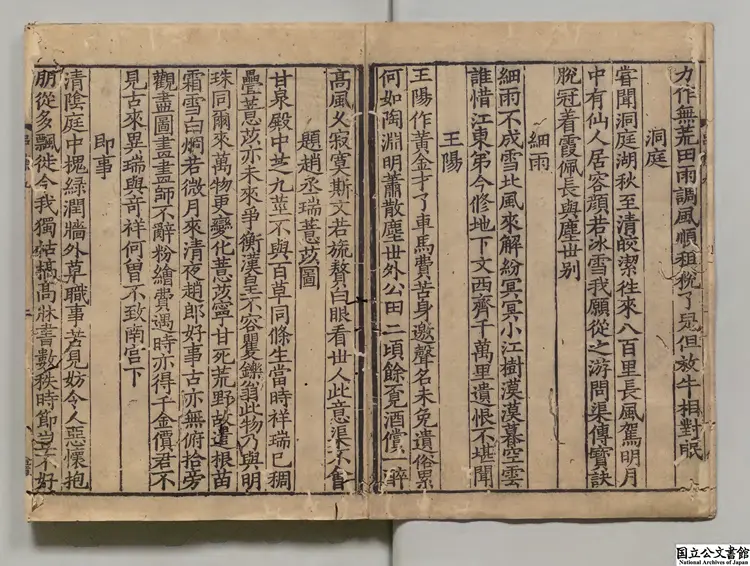 力作無荒田雨調風順租稅了是但放牛相對眠
洞庭
嘗聞洞庭湖秋至清皎潔往來八百里長風駕明月
中有仙人居容顔若冰雪我願從之游問渠傳寶訣
脫冠着霞佩長與塵世别
細雨
細雨不成雪北風來解紛冥冥小江樹漠漠暮空雲
誰惜江東弟今修地下文西齊千萬里遺恨不堪聞
王陽
王陽作黃金才了車馬費苦身邀聲名未免遺俗累
何如陶淵明蕭散塵世外公田二頃餘覔酒償一醉
高風久寂寞斯文若旒贅白眼看世人此意渠不
題趙丞瑞薏苡圖
甘泉殿中芝九莖不與百草同條生當時祥瑞已稠
疊薏苡亦未來爭衡漢皇不容矍鑠翁此物乃與明
珠同爾來萬物更變化薏苡寧甘死荒野故遣根苗
霜雪白烱若微月來清夜趙郎好事古亦無俯拾旁
觀盡圖畫畫師不辭粉繪費遇時亦得千金價君不
見古來異瑞與奇祥何曾不致南宫下
即事
清陰庭中槐綠潤牆外草職事苦見妨令人惡懷抱
朋從多飄徙今我獨枯槁高牀書數秩時節
不好
国立公文書館
National Archives of Japan